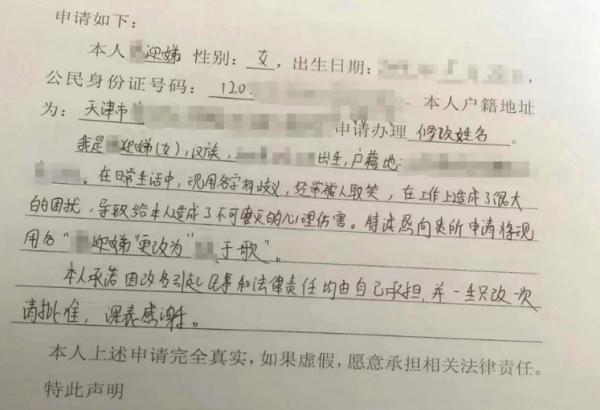 申请如下：
本人 迎娣 性别：女，出生日期：
公民身份证号码：120 本人户籍地址
为：天津市 申请办理 修改姓名。
我是 迎娣（女），汉族， 出生，户籍地：
。在日常生活中，现用名字有歧义，经常被人取笑，在工作上造成了很大
的困扰，导致给本人造成了不可磨灭的心理伤害。特此 向贵所申请将现
用名“ 迎娣”更改为“ 于歌”。
本人承诺因改名引起民事和法律责任均由自己承担，并一生只改一次
请批准，深表感谢。
本人上述申请完全真实，如果虚假，愿意承担相关法律责任。
特此声明